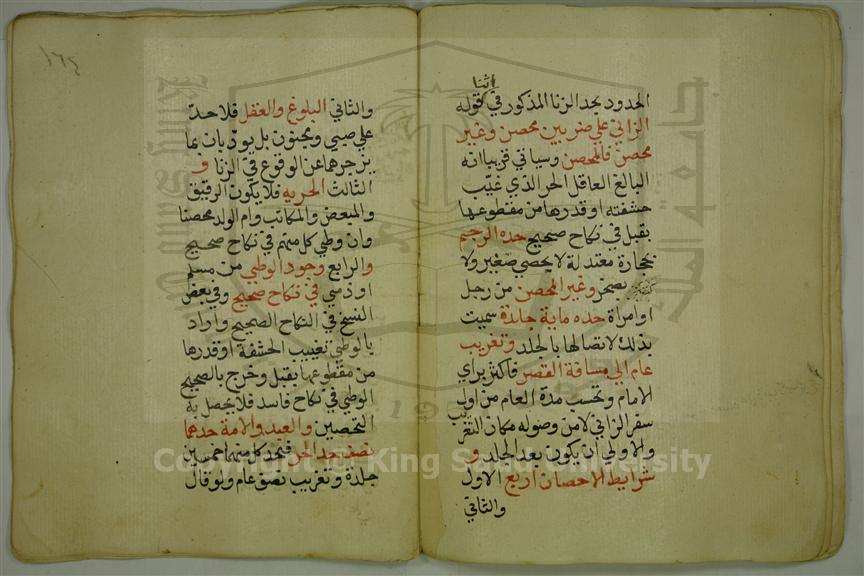 اثنا
الحدود بحد الزنا المذكور في قوله
الزاني علي ضربين محصن وغير
محصن فالمحصن وسياتي قريبا انه
البالغ العاقل الحر الذي غيّب
حشفته او قدرها من مقطوعها
بقبل في نكاح صحيح حده الرجم
بحجارة معتدلة لا بحصي صغير ولا
بصخر وغير المحصن من رجل
او امراة حده ماية جلدة سميت
بذلك لاتصالها بالجلد وتغريب
عام الي مسافة القصر فاكثر براي
الامام وتحسب مدة العام من اول
سفر الزاني لا من وصوله مكان التغريب
والاولي ان يكون بعد الجلد و
شرايط الاحصان اربع الاول
والثاني
١٦٤
والثاني البلوغ والعقل فلا حد
علي صبي ومجنون بل يودبان بما
يزجرهما عن الوقوع في الزنا و
الثالث الحريه فلا يكون الرقيق
والمبعض والمكاتب وام الولد محصنا
وان وطي كل منهم في نكاح صحيح
والرابع وجود الوطي من مسلم
او ذمي في نكاح صحيح وفي بعض
النسخ في النكاح الصحيح واراد
بالوطي تغييب الحشفة او قدرها
من مقطوعها بقبل وخرج بالصحيح
الوطي في نكاح فاسد فلا يحصل به
التحصين والعبد والامة حدهما
نصف حد الحر فيحد كل منهما خمسين
جلدة وتغريب نصف عام ولو قال
Copyright © King Saud University
جامعة الملك سعود
1957